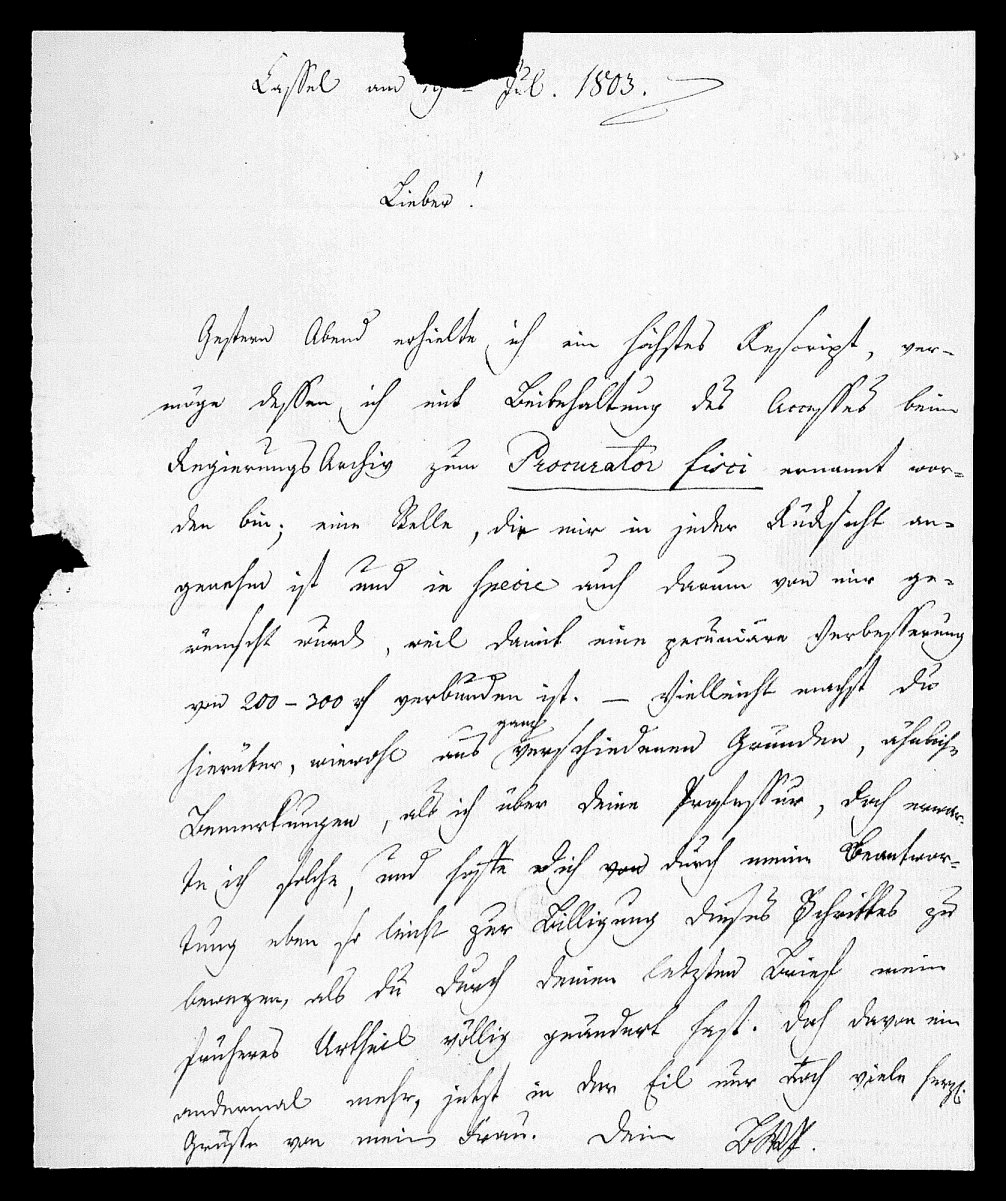 Cassel am 19 Jul. 1803.
Lieber!
Gestern Abend erhielte ich ein höchstes Rescript, ver-
möge dessen ich mit Beibehaltung des Accesses beim
RegierungsArchiv zum Procurator fisci ernannt wor-
den bin; eine Stelle, die mir in jeder Rücksicht an-
genehm ist und in specie auch darum von mir ge-
wünscht wurde, weil damit eine pecuniäre Verbesserung
von 200-300 rh verbunden ist. – Vielleicht machst du
hierüber, wiewohl aus ganz verschiedenen Gründen, ähnliche
Bemerkungen, als ich über deine Professur, doch erwar-
te ich solche, und hoffe dich von durch meine Beantwor-
tung eben so leicht zur Billigung dieses Schrittes zu
bewegen, als du durch deinen letzten Brief mein
früheres Urtheil völlig geändert hast. Doch davon ein
andermal mehr, jetzt in der Eil nur noch viele herzl.
Grüße von meiner Frau. Dein